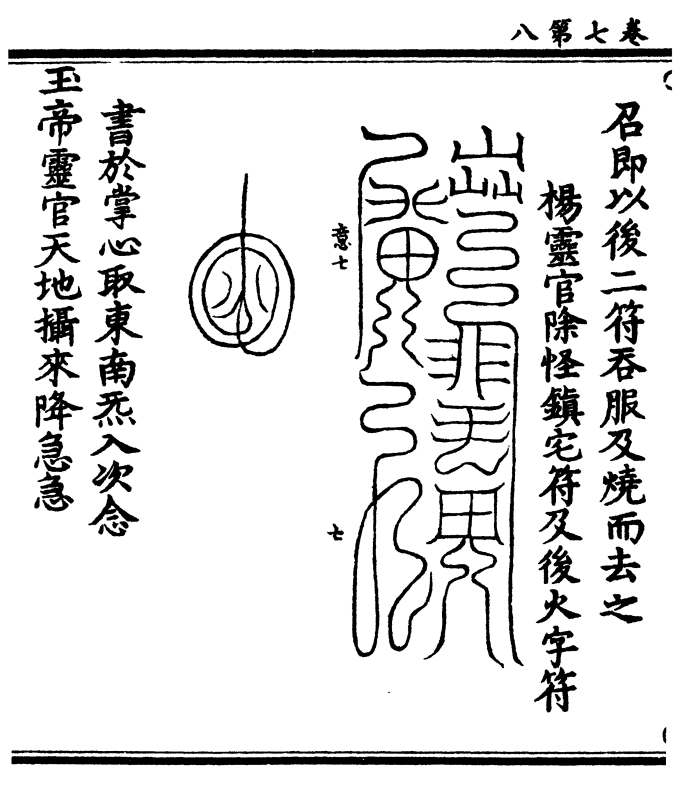 卷七第八
召即以後二符吞服及燒而去之
楊靈官除怪鎮宅符及後火字符
意七
七
書於掌心取東南炁入次念
玉帝靈官天地攝來降急急